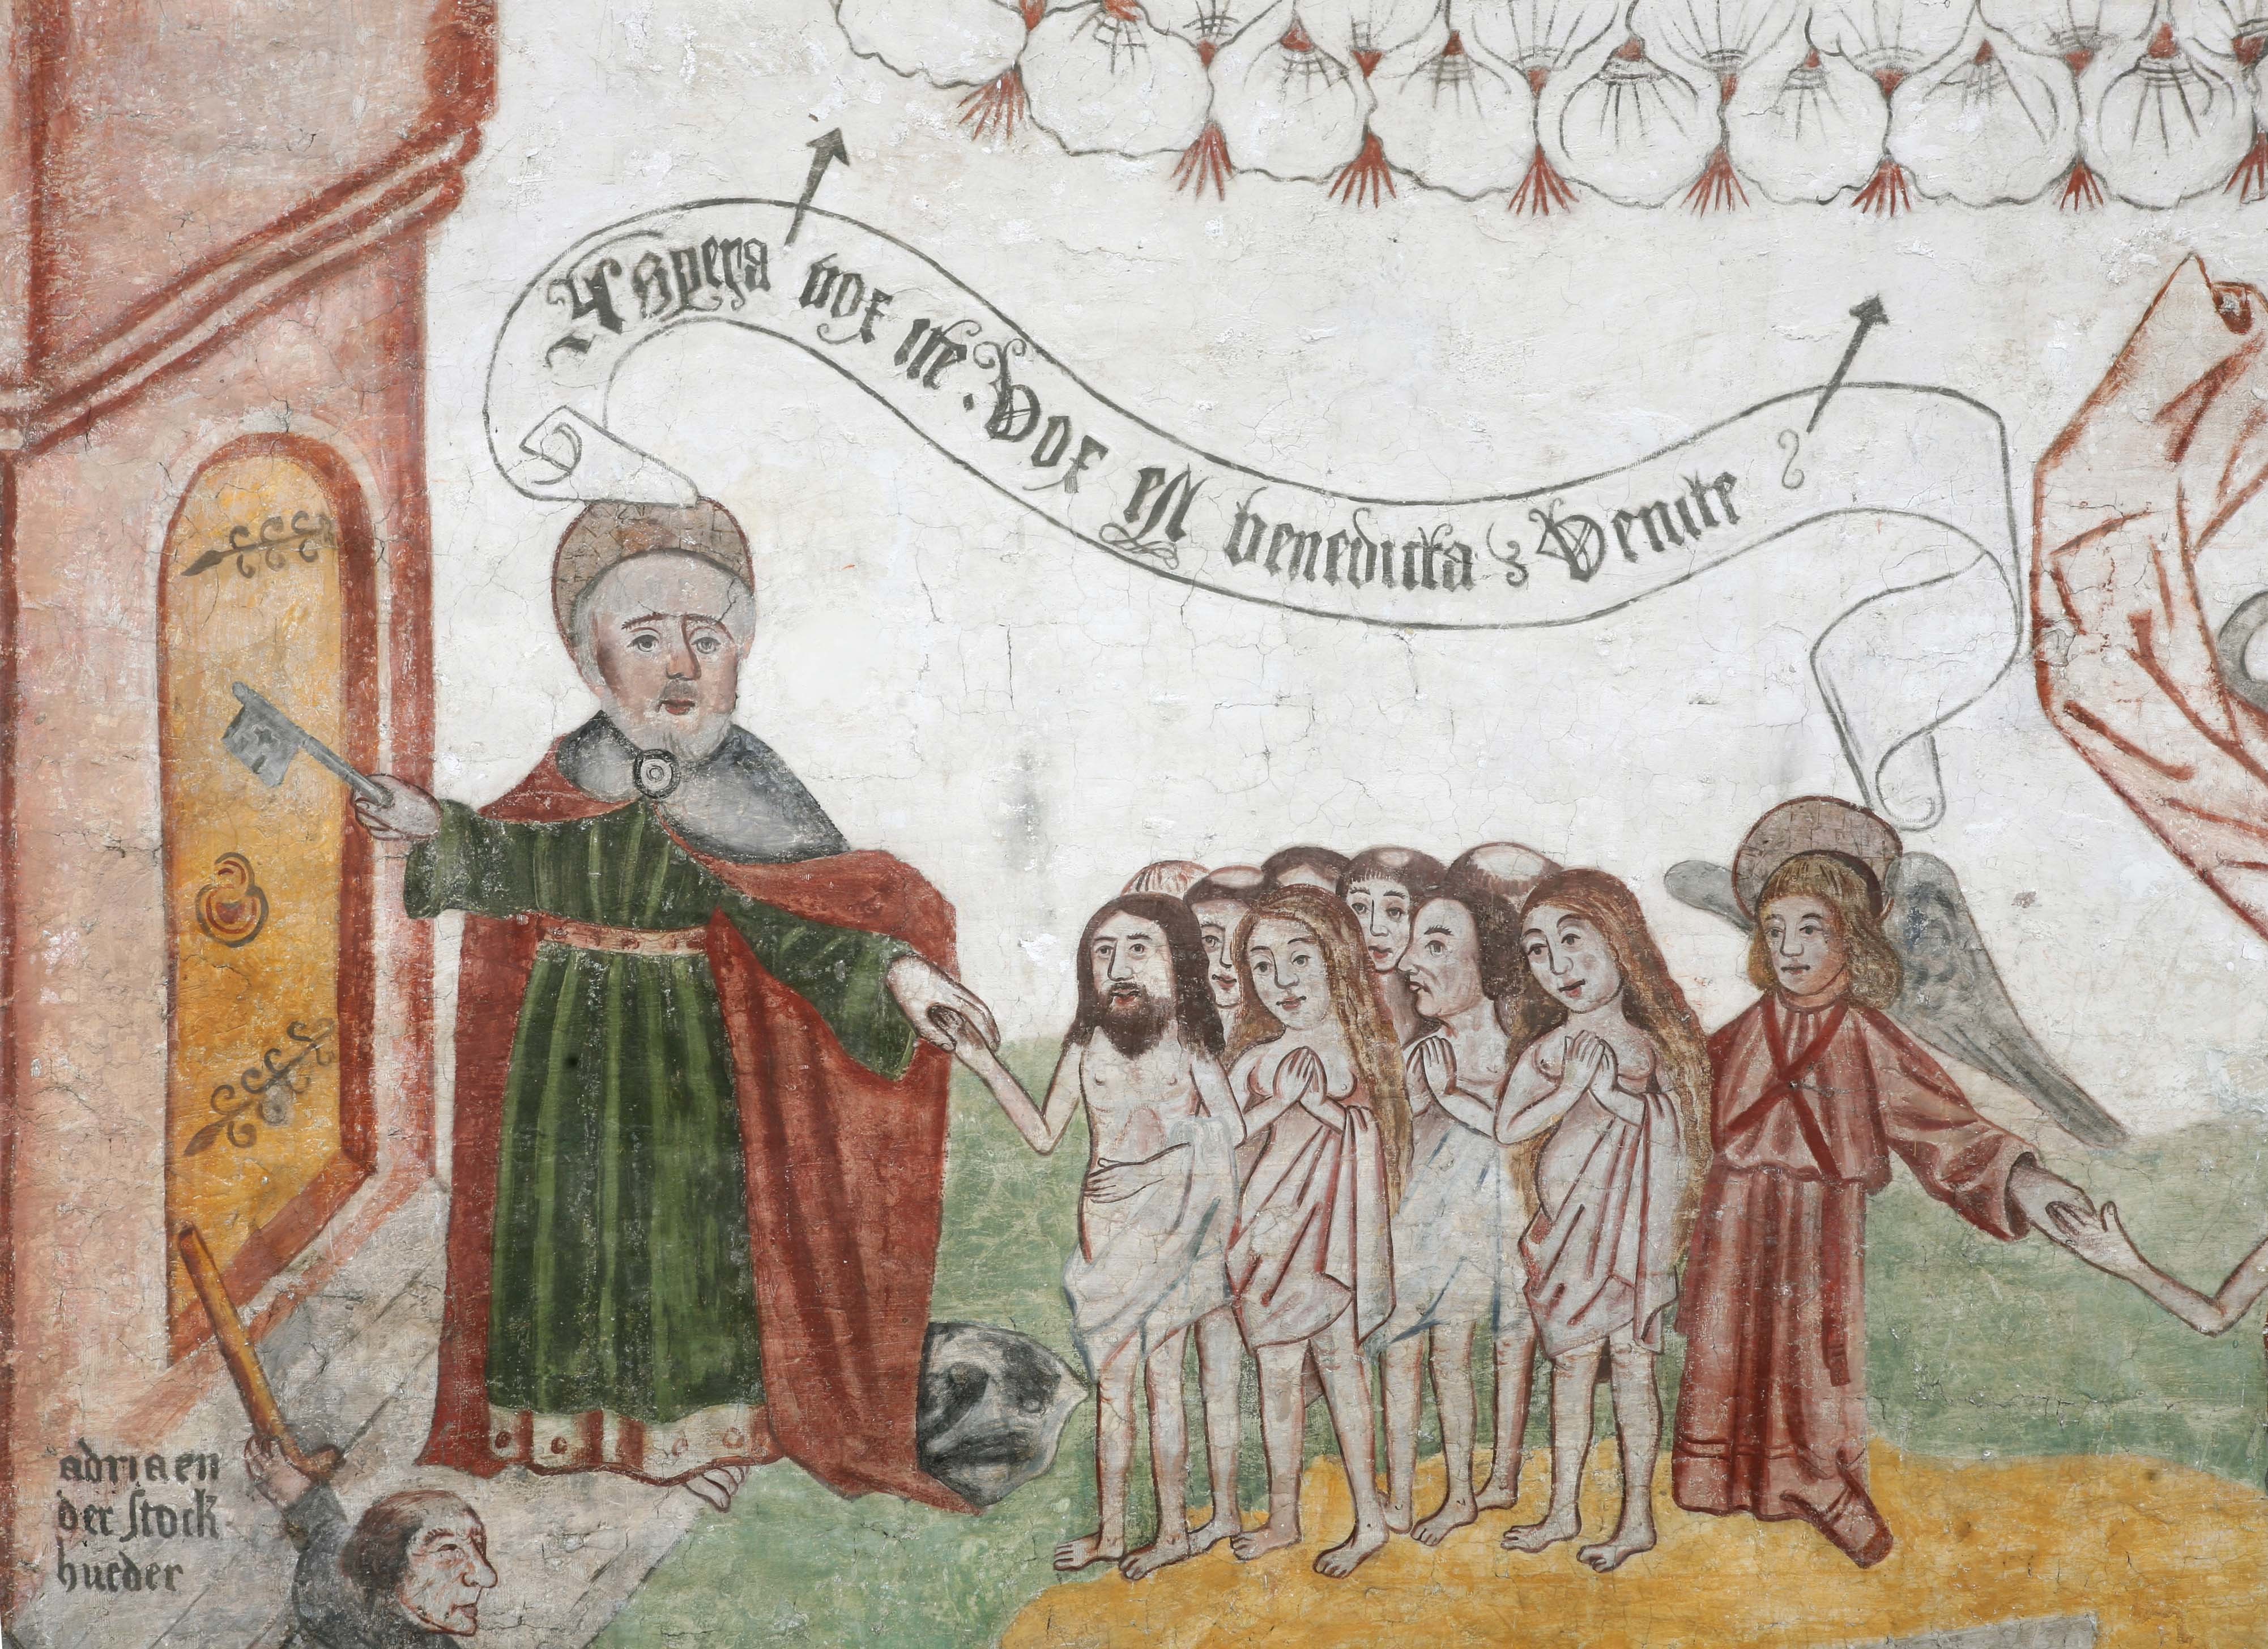 Aspera vox ite. Vox est benedicta Venite
adriaen
der stock
hueder